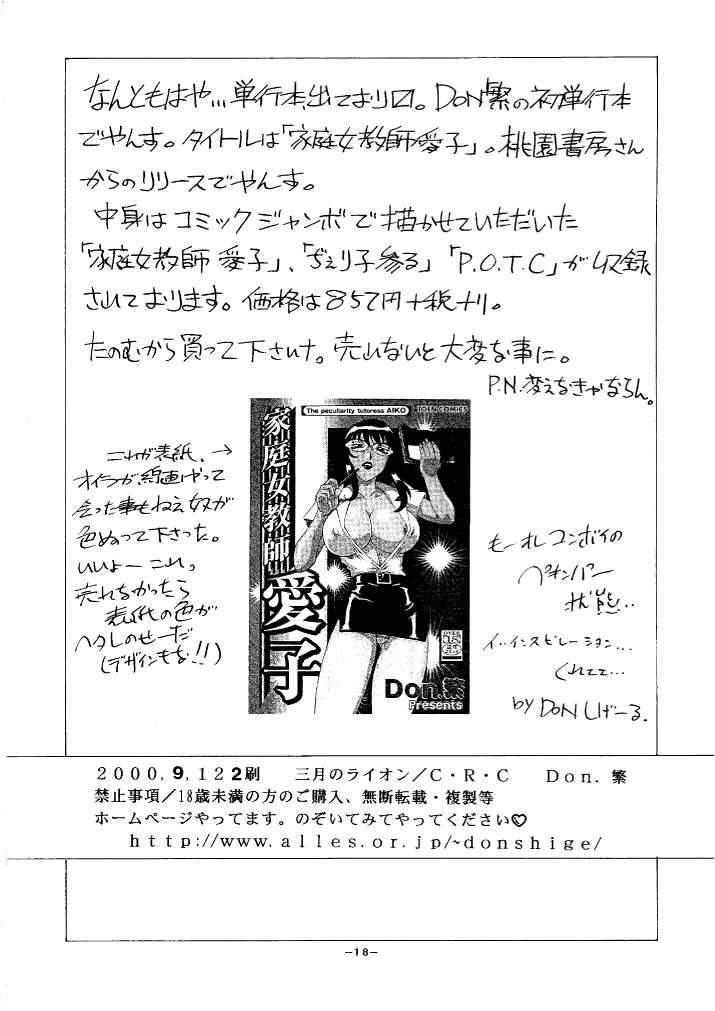 なんともはや…単行本出ており〼。DON繁の初単行本
でやんす。タイトルは「家庭女教師愛子」。桃園書房さん
からのリリースでやんす。
中身はコミックジャンボで描かせていただいた
「家庭女教師 愛子」、「ぢぇり子参る」「P.O.T.C」が収録
されております。価格は857円+税ナリ。
たのむから買って下さいナ。売れないと大変な事に。
P.N.変えなきゃならん。
これが表紙、→
オイラが線画しやって
会った事もねえ奴が
色ぬって下さった。
いいよーこれっ
売れなかったら
表紙の色が
ヘタレのせーだ
(デザインもな!!)
The peculiarity tutoress AIKO
TOEN COMICS
家庭女教師
愛子
Don.繁
Presents
もーれコンボイの
ペキンパー
状態…
イ..インスピレーション...
くれェェ...
by DON しげーる.
2000,9,12 2刷 三月のライオン/C・R・C Don. 繁
禁止事項/18歳未満の方のご購入、無断転載・複製等
ホームページやってます。のぞいてみてやってください♡
http://www.alles.or.jp/~donshige/
-18-